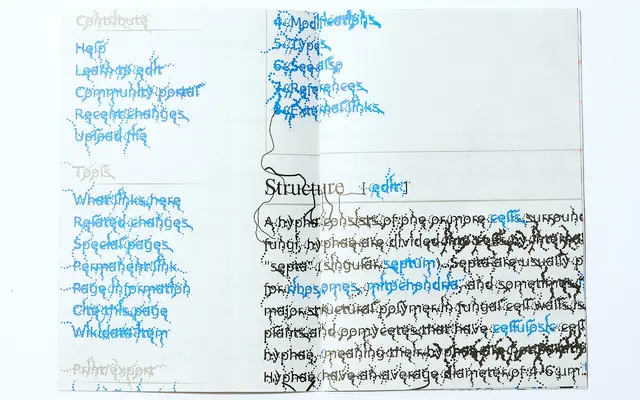 Contribute
Help
Learn to edit
Community portal
Recent changes
Upload file
Tools
What links here
Related changes
Special pages
Permanent link
Page information
Cite this page
Wikidata item
Print/export
4 Modifications
5 Types
6 See also
7 References
8 External links
Structure [ edit ]
A hypha consists of one or more cells surroun
fungi, hyphae are divided into cells by interna
"septa" (singular septum). Septa are usually p
for ribosomes, mitochondria, and sometimes
major structural polymer in fungal cell walls is
plants and oomycetes that have cellulosic cell
hyphae, meaning their hyphae are not
Hyphae have an average diameter of 4-6 µm.